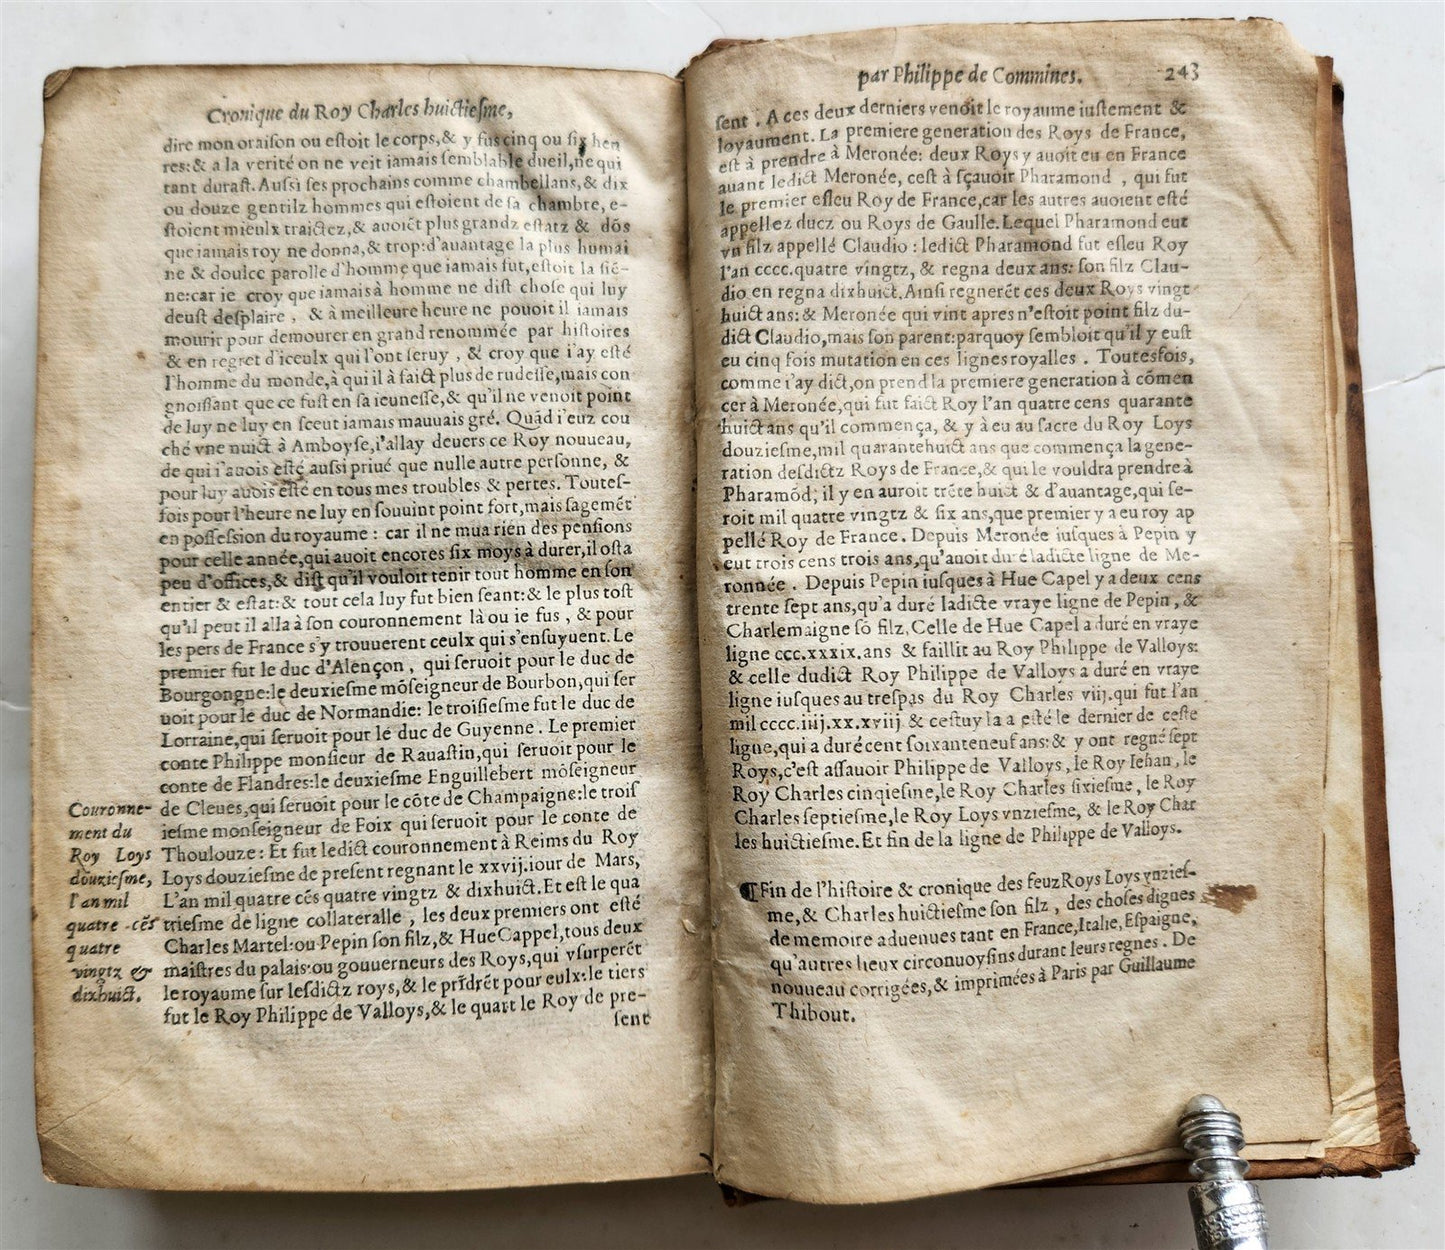 Cronique du Roy Charles huictiesme,
dire mon oraison ou estoit le corps,& y fus cinq ou six heu
res:& a la verité on ne veit iamais semblable dueil,ne qui
tant durast.Aussi ses prochains comme chambellans,& dix
ou douze gentilz hommes qui estoient de sa chambre, e-
stoient mieulx traictez,& auoiẽt plus grandz estatz & dõs
que iamais roy ne donna,& trop:d'auantage la plus humai
ne & doulce parolle d'homme que iamais fut,estoit la siẽ-
ne:car ie croy que iamais à homme ne dist chose qui luy
deust desplaire , & à meilleure heure ne pouoit il iamais
mourir pour demourer en grand renommée par histoires
& en regret d'iceulx qui l'ont seruy , & croy que i'ay esté
l'homme du monde,à qui il à faict plus de rudesse,mais con
gnoissant que ce fust en sa ieunesse,& qu'il ne venoit point
de luy ne luy en sceut iamais mauuais gré. Quãd i'euz cou
ché vne nuict à Amboyse,i'allay deuers ce Roy nouueau,
de qui i'auois esté aussi priué que nulle autre personne, &
pour luy auois esté en tous mes troubles & pertes. Toutes-
fois pour l'heure ne luy en souuint point fort,mais sagemẽt
en possession du royaume : car il ne mua rien des pensions
pour celle année,qui auoit encores six moys à durer,il osta
peu d'offices,& dist qu'il vouloit tenir tout homme en son
entier & estat:& tout cela luy fut bien seant:& le plus tost
qu'il peut il alla à son couronnement là ou ie fus , & pour
les pers de France s'y trouuerent ceulx qui s'ensuyuent. Le
premier fut le duc d'Alençon , qui seruoit pour le duc de
Bourgongne:le deuxiesme mõseigneur de Bourbon,qui ser
uoit pour le duc de Normandie: le troisiesme fut le duc de
Lorraine,qui seruoit pour le duc de Guyenne . Le premier
conte Philippe monsieur de Rauastin,qui seruoit pour le
conte de Flandres:le deuxiesme Enguillebert mõseigneur
de Cleues,qui seruoit pour le cõte de Champaigne:le trois
iesme monseigneur de Foix qui seruoit pour le conte de
Thoulouze: Et fut ledict couronnement à Reims du Roy
Loys douziesme de present regnant le xxvij.iour de Mars,
L'an mil quatre cẽs quatre vingtz & dixhuict.Et est le qua
triesme de ligne collateralle , les deux premiers ont esté
Charles Martel:ou Pepin son filz,& Hue Cappel,tous deux
maistres du palais:ou gouuerneurs des Roys,qui vsurperẽt
le royaume sur lesdictz roys,& le prĩdrẽt pour eulx:le tiers
fut le Roy Philippe de Valloys,& le quart le Roy de pre-
sent
Couronne-
ment du
Roy Loys
douziesme,
l'an mil
quatre cẽs
quatre
vingtz &
dixhuict.
par Philippe de Commines. 243
sent . A ces deux derniers venoit le royaume iustement &
loyaument. La premiere generation des Roys de France,
est à prendre à Meronée: deux Roys y auoit eu en France
auant ledict Meronée, cest à sçauoir Pharamond , qui fut
le premier esleu Roy de France,car les autres auoient esté
appellez ducz ou Roys de Gaulle. Lequel Pharamond eut
vn filz appellé Claudio : ledict Pharamond fut esleu Roy
l'an cccc.quatre vingtz, & regna deux ans: son filz Clau-
dio en regna dixhuict.Ainsi regnerẽt ces deux Roys vingt
huict ans:& Meronée qui vint apres n'estoit point filz du-
dict Claudio,mais son parent:parquoy sembloit qu'il y eust
eu cinq fois mutation en ces lignes royalles . Toutesfois,
comme i'ay dict,on prend la premiere generation à cõmen
cer à Meronée,qui fut faict Roy l'an quatre cens quarante
huict ans qu'il commença, & y à eu au sacre du Roy Loys
douziesme,mil quarantehuict ans que commença la gene-
ration desdictz Roys de France,& qui le vouldra prendre à
Pharamõd; il y en auroit trẽte huict & d'auantage,qui se-
roit mil quatre vingtz & six ans,que premier y a eu roy ap
pellé Roy de France. Depuis Meronée iusques à Pepin y
eut trois cens trois ans,qu'auoit duré ladicte ligne de Me-
ronnée . Depuis Pepin iusques à Hue Capel y a deux cens
trente sept ans,qu'a duré ladicte vraye ligne de Pepin , &
Charlemaigne sõ filz. Celle de Hue Capel a duré en vraye
ligne ccc.xxxix.ans & faillit au Roy Philippe de Valloys:
& celle dudict Roy Philippe de Valloys a duré en vraye
ligne iusques au trespas du Roy Charles viij.qui fut l'an
mil cccc.iiij.xx.xviij & cestuy la a esté le dernier de ceste
ligne,qui a duré cent soixanteneuf ans:& y ont regné sept
Roys,c'est assauoir Philippe de Valloys , le Roy Iehan , le
Roy Charles cinqiesme,le Roy Charles sixiesme , le Roy
Charles septiesme,le Roy Loys vnziesme, & le Roy Char
les huictiesme.Et fin de la ligne de Philippe de Valloys.
¶Fin de l'histoire & cronique des feuz Roys Loys vnzies-
me,& Charles huictiesme son filz , des choses dignes
de memoire aduenues tant en France,Italie,Espaigne,
qu'autres lieux circonuoysins durant leurs regnes . De
nouueau corrigées,& imprimées à Paris par Guillaume
Thibout.